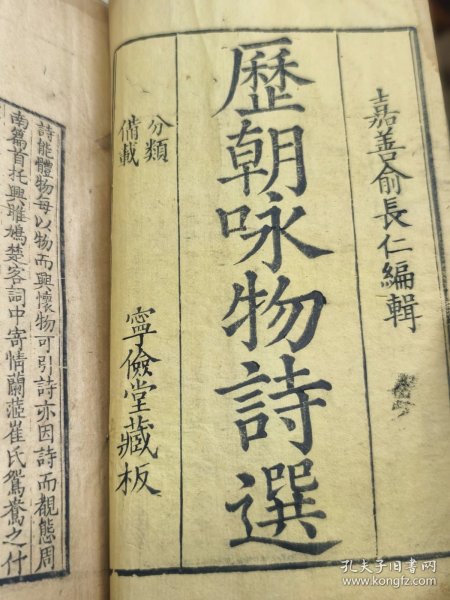 嘉善俞長仁編輯
歷朝咏物詩選
分類
備載
寧儉堂藏板
詩能體物每以物而興懷物可引詩亦因詩而觀態周
南篇首托興雎鳩楚客詞中寄情蘭蕋崔氏鴛鴦之什
孔夫子旧书网
www.kongfz.com